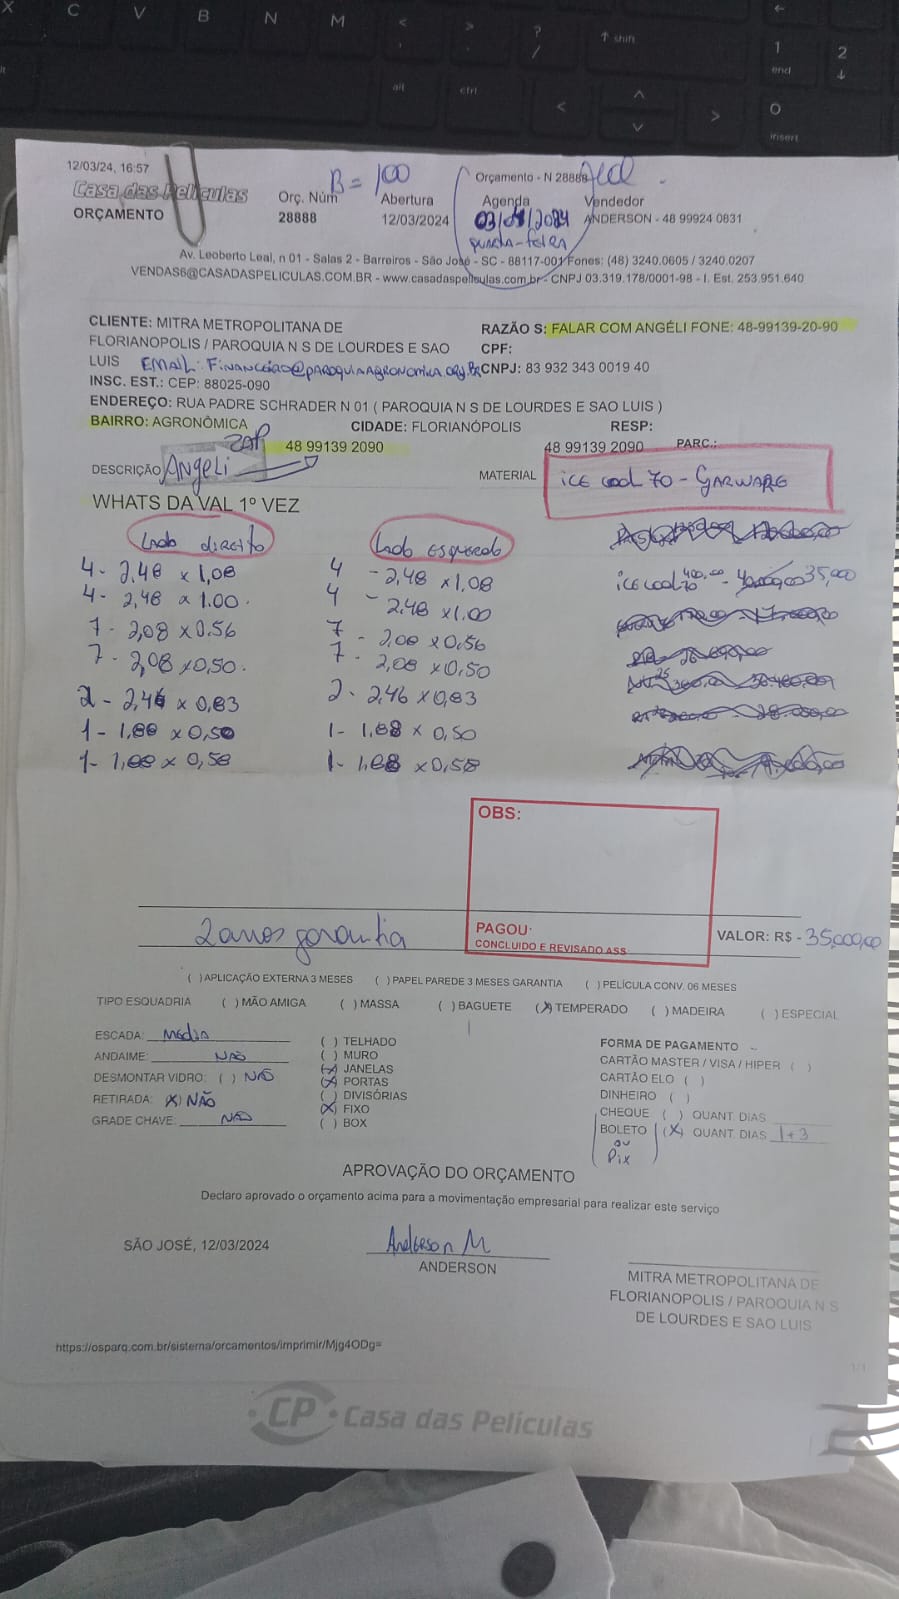 12/03/24, 16:57
B = 100
Orçamento - N 28888
Casa das Películas
ORÇAMENTO
Orç. Núm
28888
Abertura
12/03/2024
Agenda
quarta-feira
Vendedor
ANDERSON - 48 99924 0831
Av. Leoberto Leal, n 01 - Salas 2 - Barreiros - São José - SC - 88117-001 Fones: (48) 3240.0605 / 3240.0207
VENDAS6@CASADASPELICULAS.COM.BR - www.casadaspeliculas.com.br - CNPJ 03.319.178/0001-98 - I. Est. 253.951.640
CLIENTE: MITRA METROPOLITANA DE
FLORIANOPOLIS / PAROQUIA N S DE LOURDES E SAO
LUIS EMAIL: Financeiro@paroquiaagronomica.org.br
RAZÃO S: FALAR COM ANGÉLI FONE: 48-99139-20-90
CPF:
CNPJ: 83 932 343 0019 40
INSC. EST.: CEP: 88025-090
ENDEREÇO: RUA PADRE SCHRADER N 01 ( PAROQUIA N S DE LOURDES E SAO LUIS )
BAIRRO: AGRONÔMICA CIDADE: FLORIANÓPOLIS RESP:
ZAP 48 99139 2090 48 99139 2090 PARC.:
DESCRIÇÃO Angeli MATERIAL ice cool 70 - GARWARE
WHATS DA VAL 1º VEZ
Lado direito Lado esquerdo
4 - 2,48 x 1,08 4 - 2,48 x 1,08 ice cool 70 400,00 35,000
4 - 2,48 x 1.00. 4 - 2.48 x 1.00
7 - 2,08 x 0.56 7 - 2,08 x 0,56
7 - 2,08 x 0,50. 7 - 2,08 x 0,50
2 - 2,46 x 0,83 2 - 2,46 x 0,83
1 - 1,88 x 0,50 1 - 1,88 x 0,50
1 - 1,88 x 0,58 1 - 1,88 x 0,58
OBS:
2 anos garantia
PAGOU:
CONCLUIDO E REVISADO ASS
VALOR: R$ - 35,000,00
( ) APLICAÇÃO EXTERNA 3 MESES ( ) PAPEL PAREDE 3 MESES GARANTIA ( ) PELÍCULA CONV. 06 MESES
TIPO ESQUADRIA ( ) MÃO AMIGA ( ) MASSA ( ) BAGUETE (X) TEMPERADO ( ) MADEIRA ( ) ESPECIAL
ESCADA: Media
ANDAIME: NÃO
DESMONTAR VIDRO: ( ) NÃO
RETIRADA: (X) NÃO
GRADE CHAVE: NÃO
( ) TELHADO
( ) MURO
(X) JANELAS
(X) PORTAS
( ) DIVISÓRIAS
(X) FIXO
( ) BOX
FORMA DE PAGAMENTO
CARTÃO MASTER / VISA / HIPER ( )
CARTÃO ELO ( )
DINHEIRO ( )
CHEQUE ( ) QUANT. DIAS
BOLETO (X) QUANT. DIAS 1+3
ou
Pix
APROVAÇÃO DO ORÇAMENTO
Declaro aprovado o orçamento acima para a movimentação empresarial para realizar este serviço
SÃO JOSÉ, 12/03/2024
Anderson M
ANDERSON
MITRA METROPOLITANA DE
FLORIANOPOLIS / PAROQUIA N S
DE LOURDES E SAO LUIS
https://osparq.com.br/sistema/orcamentos/imprimir/Mjg4ODg=
1/1
CP Casa das Películas
X C V B N M < , > . ? / ↑ shift 1 end 2 ↓
alt ctrl < ^ v > 0 insert